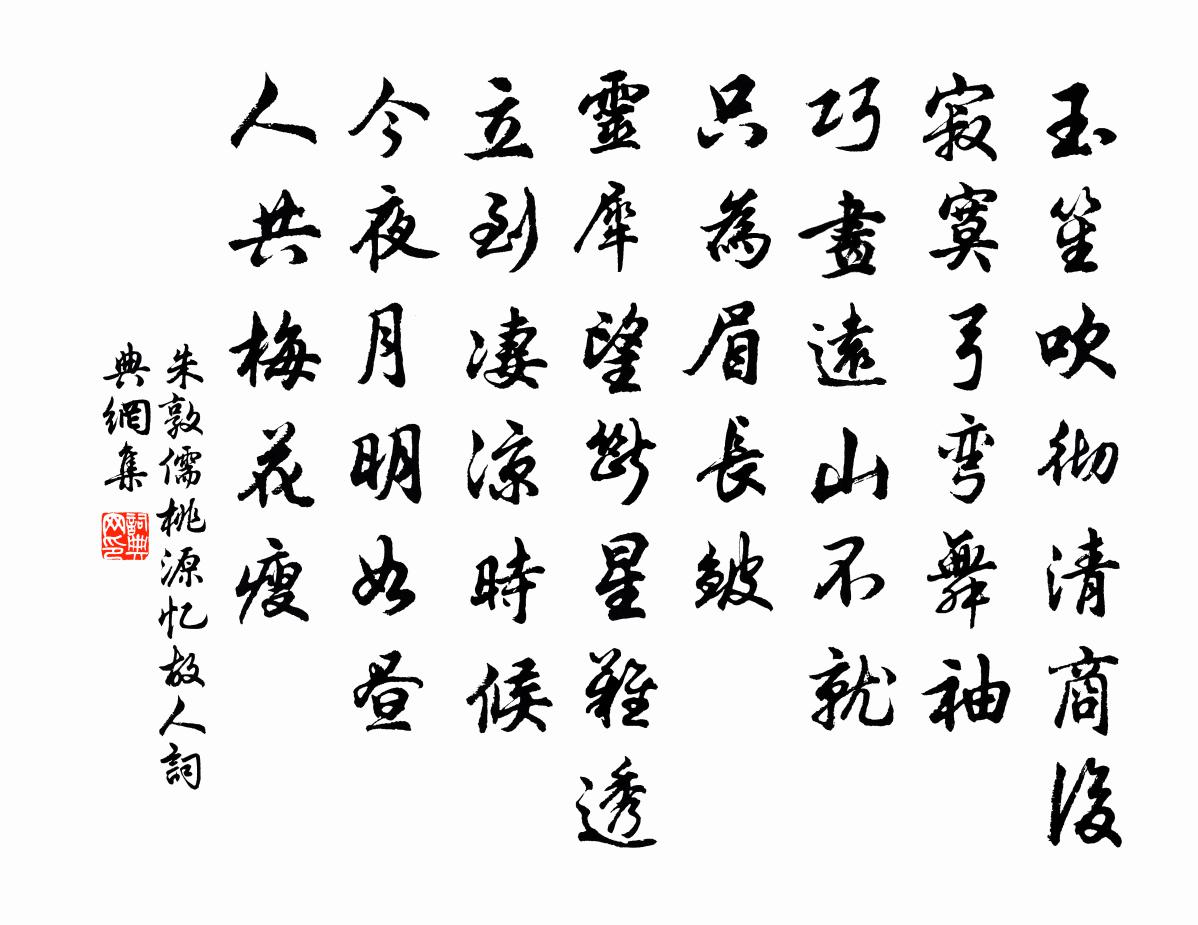 玉笙吹彻清商後
寂寞弓彎舞袖
巧畫遠山不就
只為眉長皺
靈犀望斷星難透
立到凄涼時候
今夜月明如昼
人共梅花瘦
朱敦儒桃源忆故人詞
典網集
詞典网印